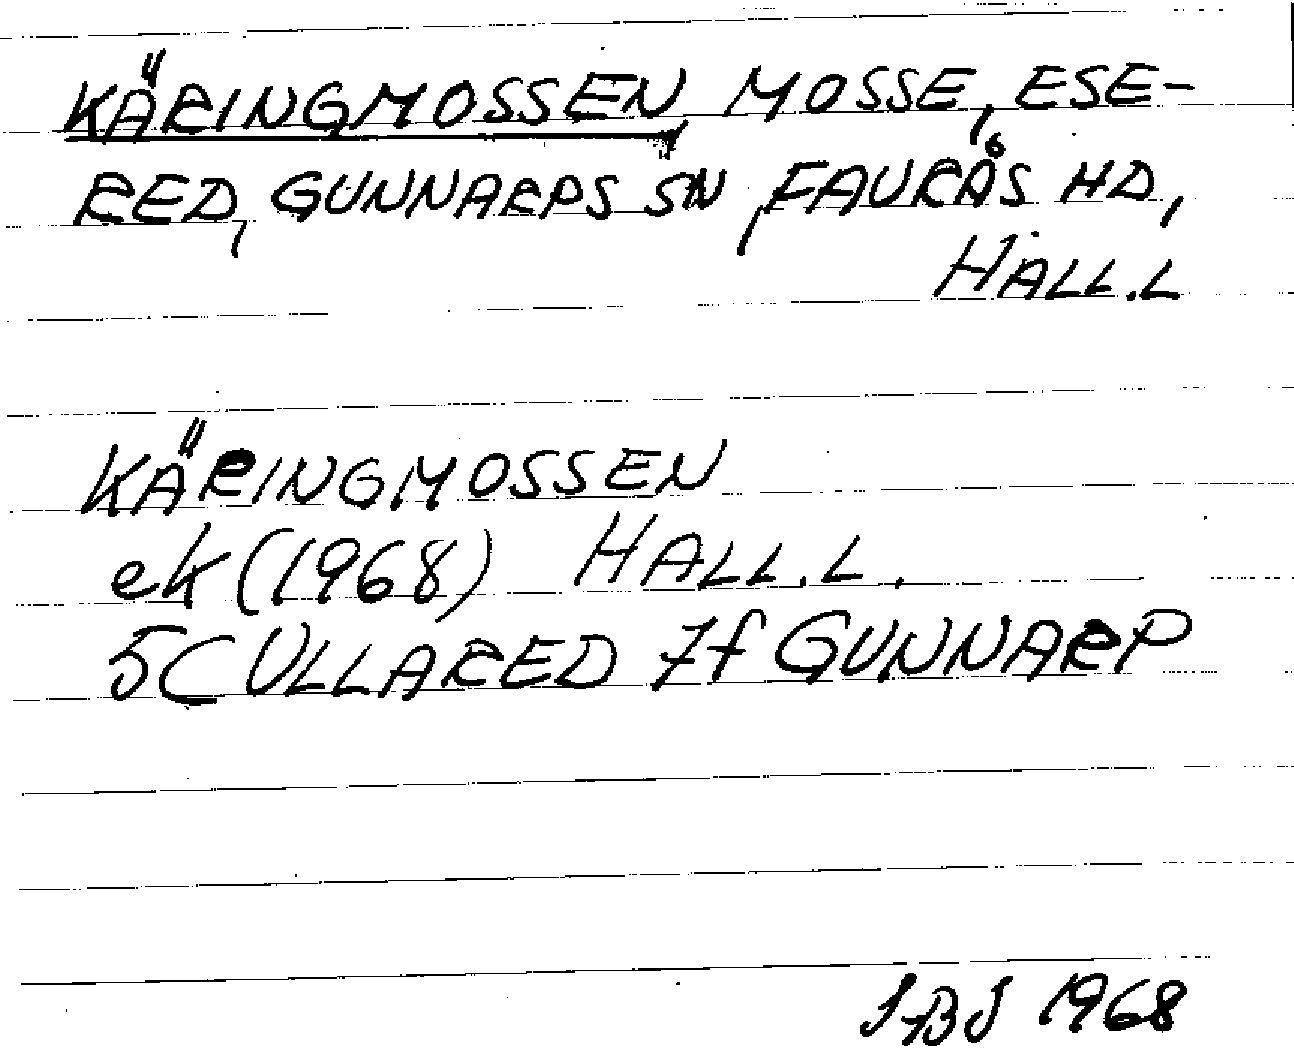 KÄRINGMOSSEN MOSSE, ESE-
RED, GUNNARPS SN, FAURÅS HD,
HALL.L
KÄRINGMOSSEN
ek (1968) HALL.L.
5C ULLARED 7f GUNNARP
1968